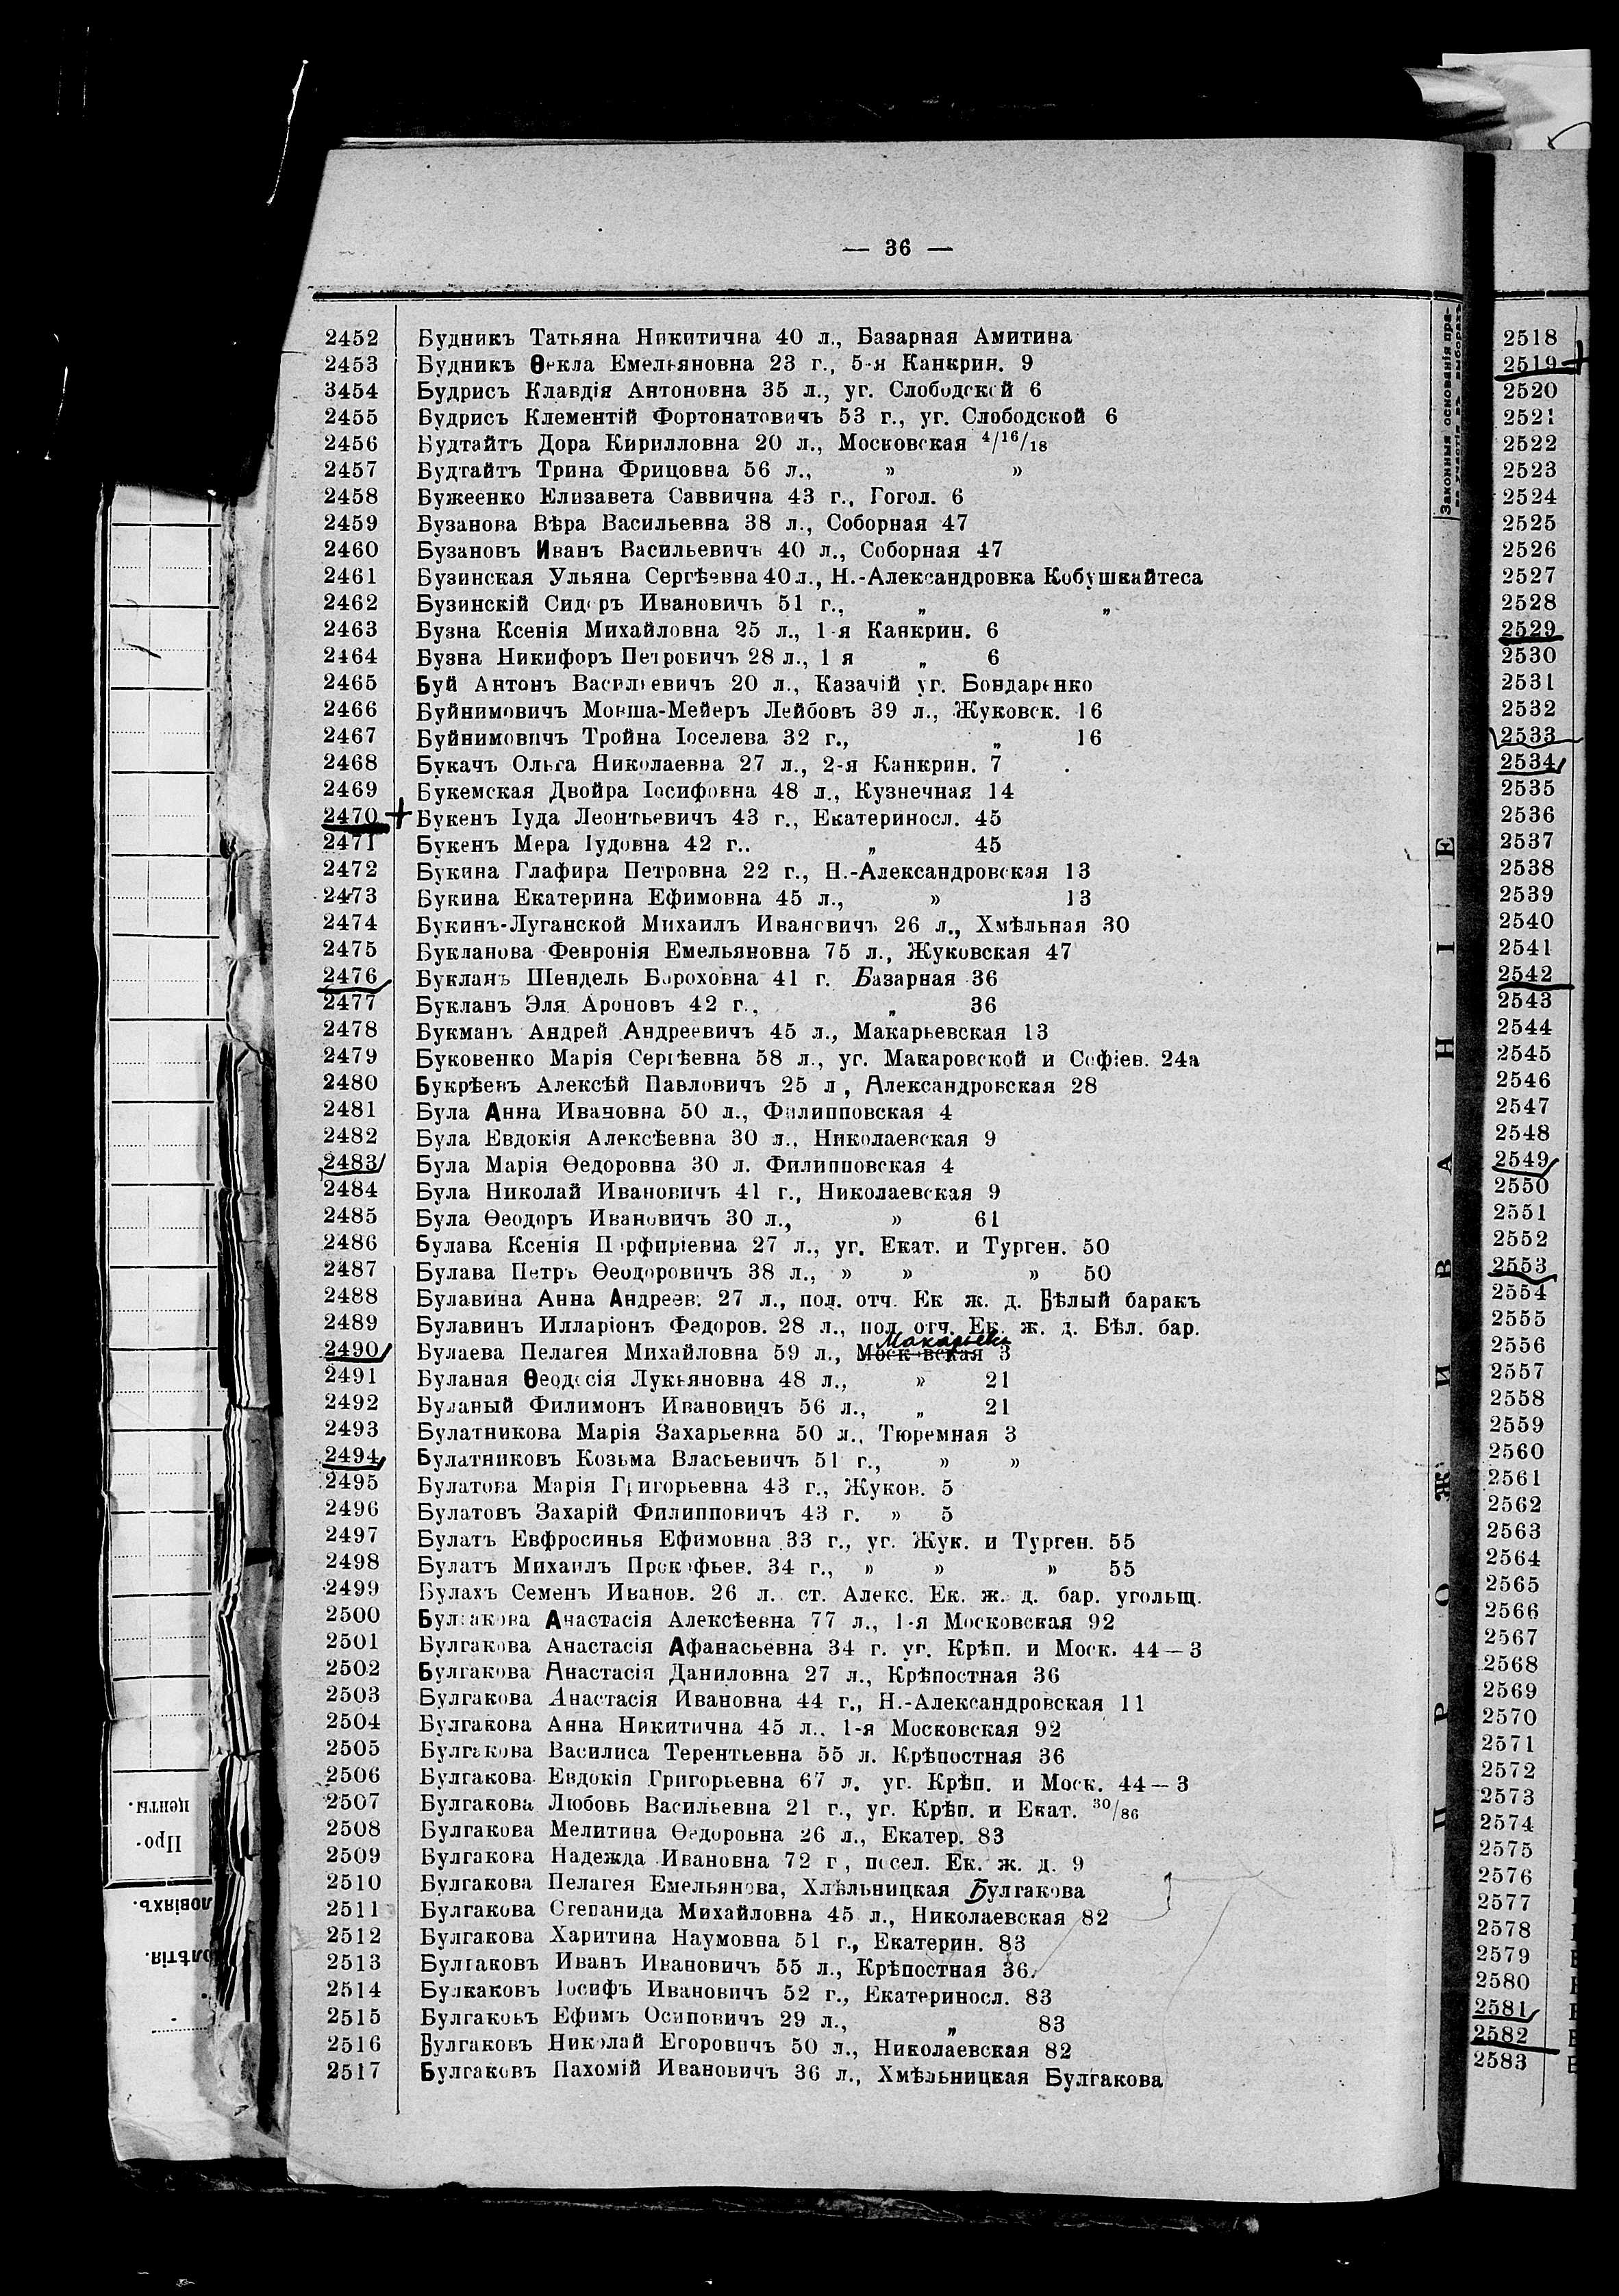 — 36 —
2452 Будникъ Татьяна Никитична 40 л., Базарная Амитина
2453 Будникъ Ѳекла Емельяновна 23 г., 5-я Канкрин. 9
3454 Будрисъ Клавдія Антоновна 35 л., уг. Слободской 6
2455 Будрисъ Клементій Фортонатовичъ 53 г., уг. Слободской 6
2456 Будтайтъ Дора Кирилловна 20 л., Московская 4/16/18
2457 Будтайтъ Трина Фрицовна 56 л., » »
2458 Бужеенко Елизавета Саввична 43 г., Гогол. 6
2459 Бузанова Вѣра Васильевна 38 л., Соборная 47
2460 Бузановъ Иванъ Васильевичъ 40 л., Соборная 47
2461 Бузинская Ульяна Сергѣевна 40 л., Н.-Александровка Кобушкайтеса
2462 Бузинскій Сидоръ Ивановичъ 51 г., „ „
2463 Бузна Ксенія Михайловна 25 л., 1-я Канкрин. 6
2464 Бузна Никифоръ Петровичъ 28 л., 1 я „ 6
2465 Буй Антонъ Васильевичъ 20 л., Казачій уг. Бондаренко
2466 Буйнимовичъ Мовша-Мейеръ Лейбовъ 39 л., Жуковск. 16
2467 Буйнимовичъ Тройна Іоселева 32 г., „ 16
2468 Букачъ Ольга Николаевна 27 л., 2-я Канкрин. 7
2469 Букемская Двойра Іосифовна 48 л., Кузнечная 14
2470 + Букенъ Іуда Леонтьевичъ 43 г., Екатериносл. 45
2471 Букенъ Мера Іудовна 42 г.. „ 45
2472 Букина Глафира Петровна 22 г., Н.-Александровская 13
2473 Букина Екатерина Ефимовна 45 л., » 13
2474 Букинъ-Луганской Михаилъ Ивановичъ 26 л., Хмѣльная 30
2475 Букланова Февронія Емельяновна 75 л., Жуковская 47
2476 Букланъ Шендель Бороховна 41 г. Базарная 36
2477 Букланъ Эля Ароновъ 42 г., „ 36
2478 Букманъ Андрей Андреевичъ 45 л., Макарьевская 13
2479 Буковенко Марія Сергѣевна 58 л., уг. Макаровской и Софіев. 24а
2480 Букрѣевъ Алексѣй Павловичъ 25 л , Александровская 28
2481 Була Анна Ивановна 50 л., Филипповская 4
2482 Була Евдокія Алексѣевна 30 л., Николаевская 9
2483 Була Марія Ѳедоровна 30 л. Филипповская 4
2484 Була Николай Ивановичъ 41 г., Николаевская 9
2485 Була Ѳеодоръ Ивановичъ 30 л., » 61
2486 Булава Ксенія Порфиріевна 27 л., уг. Екат. и Турген. 50
2487 Булава Петръ Ѳеодоровичъ 38 л., » » » 50
2488 Булавина Анна Андреев. 27 л., пол. отч. Ек ж. д. Бѣлый баракъ
2489 Булавинъ Илларіонъ Федоров. 28 л., пол. отч. Ек. ж. д. Бѣл. бар.
2490 Булаева Пелагея Михайловна 59 л., Московская 3
2491 Буланая Ѳеодосія Лукьяновна 48 л., » 21
2492 Буланый Филимонъ Ивановичъ 56 л., „ 21
2493 Булатникова Марія Захарьевна 50 л., Тюремная 3
2494 Булатниковъ Козьма Власьевичъ 51 г., » »
2495 Булатова Марія Григорьевна 43 г., Жуков. 5
2496 Булатовъ Захарій Филипповичъ 43 г. » 5
2497 Булатъ Евфросинья Ефимовна 33 г., уг. Жук. и Турген. 55
2498 Булатъ Михаилъ Прокофьев. 34 г., » » » 55
2499 Булахъ Семенъ Иванов. 26 л. ст. Алекс. Ек. ж. д. бар. угольщ.
2500 Булгакова Анастасія Алексѣевна 77 л., 1-я Московская 92
2501 Булгакова Анастасія Афанасьевна 34 г. уг. Крѣп. и Моск. 44—3
2502 Булгакова Анастасія Даниловна 27 л., Крѣпостная 36
2503 Булгакова Анастасія Ивановна 44 г., Н.-Александровская 11
2504 Булгакова Анна Никитична 45 л.. 1-я Московская 92
2505 Булгакова Василиса Терентьевна 55 л. Крѣпостная 36
2506 Булгакова Евдокія Григорьевна 67 л. уг. Крѣп. и Моск. 44—3
2507 Булгакова Любовь Васильевна 21 г., уг. Крѣп. и Екат. 30/86
2508 Булгакова Мелитина Ѳедоровна 26 л., Екатер. 83
2509 Булгакова Надежда Ивановна 72 г , посел. Ек. ж. д. 9
2510 Булгакова Пелагея Емельянова, Хлѣльницкая Булгакова
2511 Булгакова Степанида Михайловна 45 л., Николаевская 82
2512 Булгакова Харитина Наумовна 51 г., Екатерин. 83
2513 Булгаковъ Иванъ Ивановичъ 55 л., Крѣпостная 36
2514 Булкаковъ Іосифъ Ивановичъ 52 г., Екатериносл. 83
2515 Булгаковъ Ефимъ Осиповичъ 29 л., „ 83
2516 Булгаковъ Николай Егоровичъ 50 л., Николаевская 82
2517 Булгаковъ Пахомій Ивановичъ 36 л., Хмѣльницкая Булгакова
Законныя основанія пра-
ва участія въ выборахъ
ПРОЖИВАНІЕ
2518
2519 +
2520
2521
2522
2523
2524
2525
2526
2527
2528
2529
2530
2531
2532
2533
2534
2535
2536
2537
2538
2539
2540
2541
2542
2543
2544
2545
2546
2547
2548
2549
2550
2551
2552
2553
2554
2555
2556
2557
2558
2559
2560
2561
2562
2563
2564
2565
2566
2567
2568
2569
2570
2571
2572
2573
2574
2575
2576
2577
2578
2579
2580
2581
2582
2583
Про-
центы.